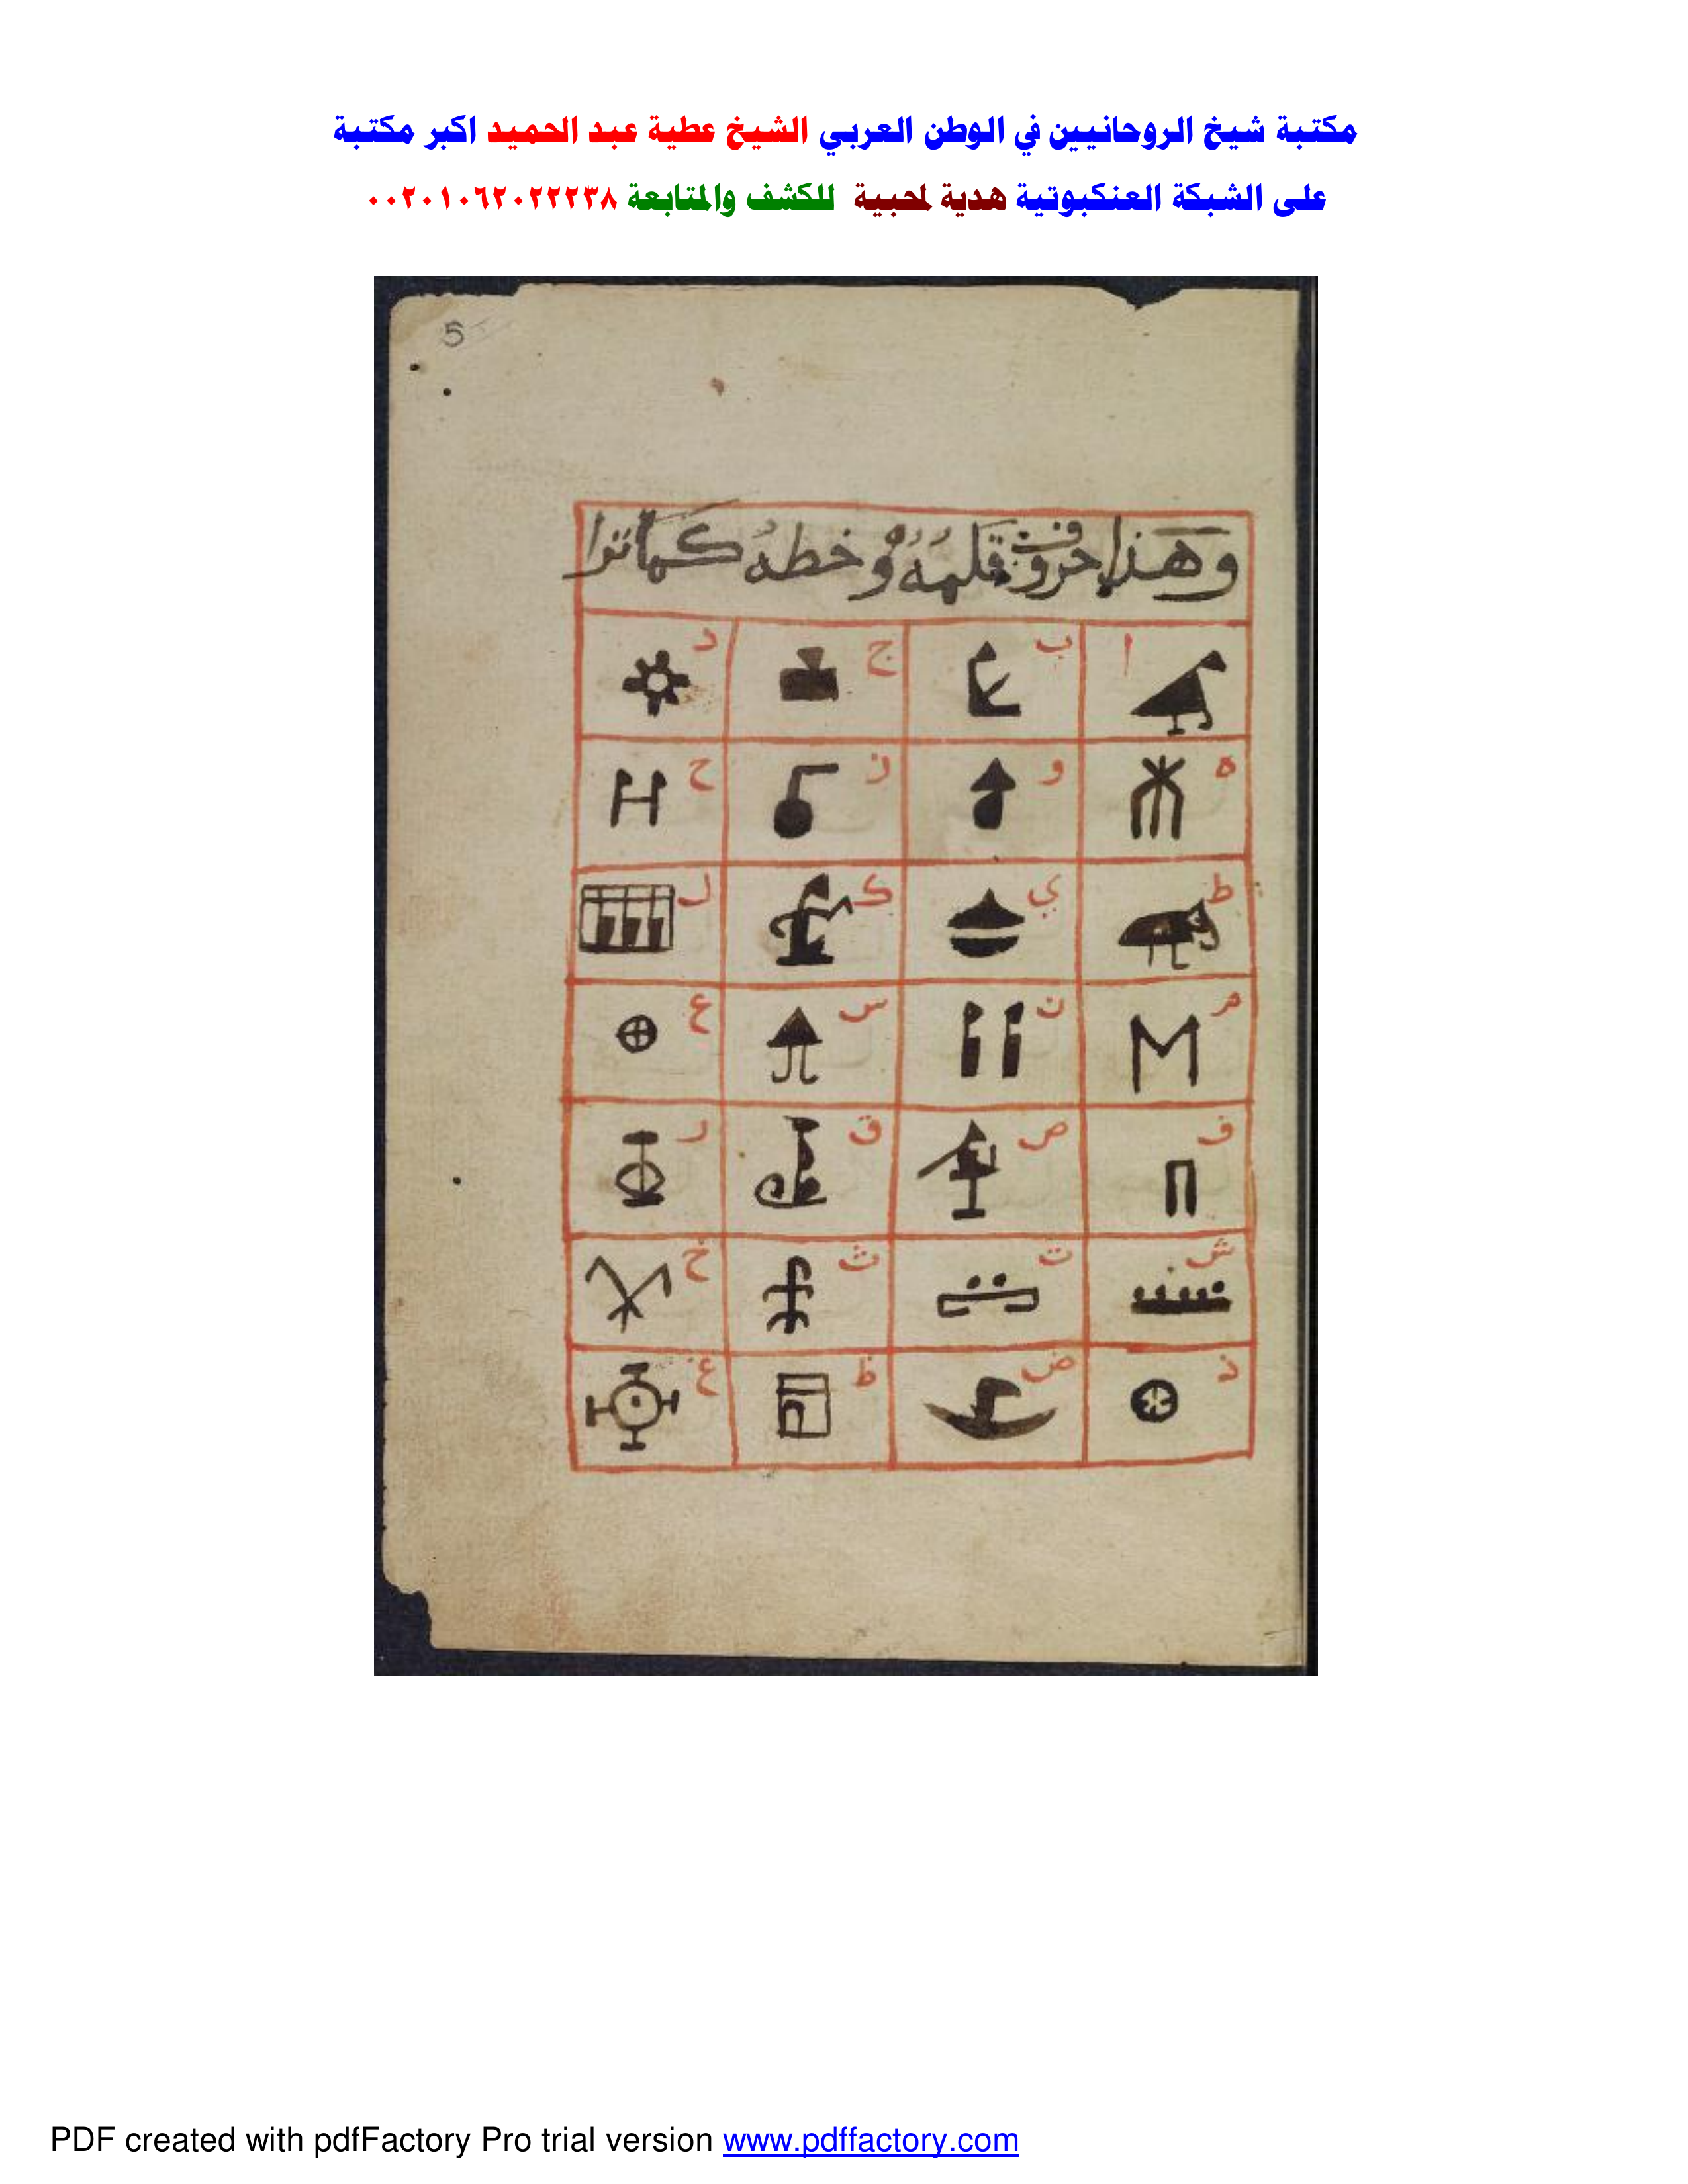 مكتبة شيخ الروحانيين في الوطن العربي الشيخ عطية عبد الحميد اكبر مكتبة
على الشبكة العنكبوتية هدية لمحبية للكشف والمتابعة ٠٠٢٠١٠٦٢٠٢٢٢٣٨
5
وهذا حروف قلمه وخطه كما ترا
ا ب ج د
ه و ز ح
ط ي ك ل
م ن س ع
ف ص ق ر
ش ت ث خ
ذ ض ظ غ
PDF created with pdfFactory Pro trial version www.pdffactory.com